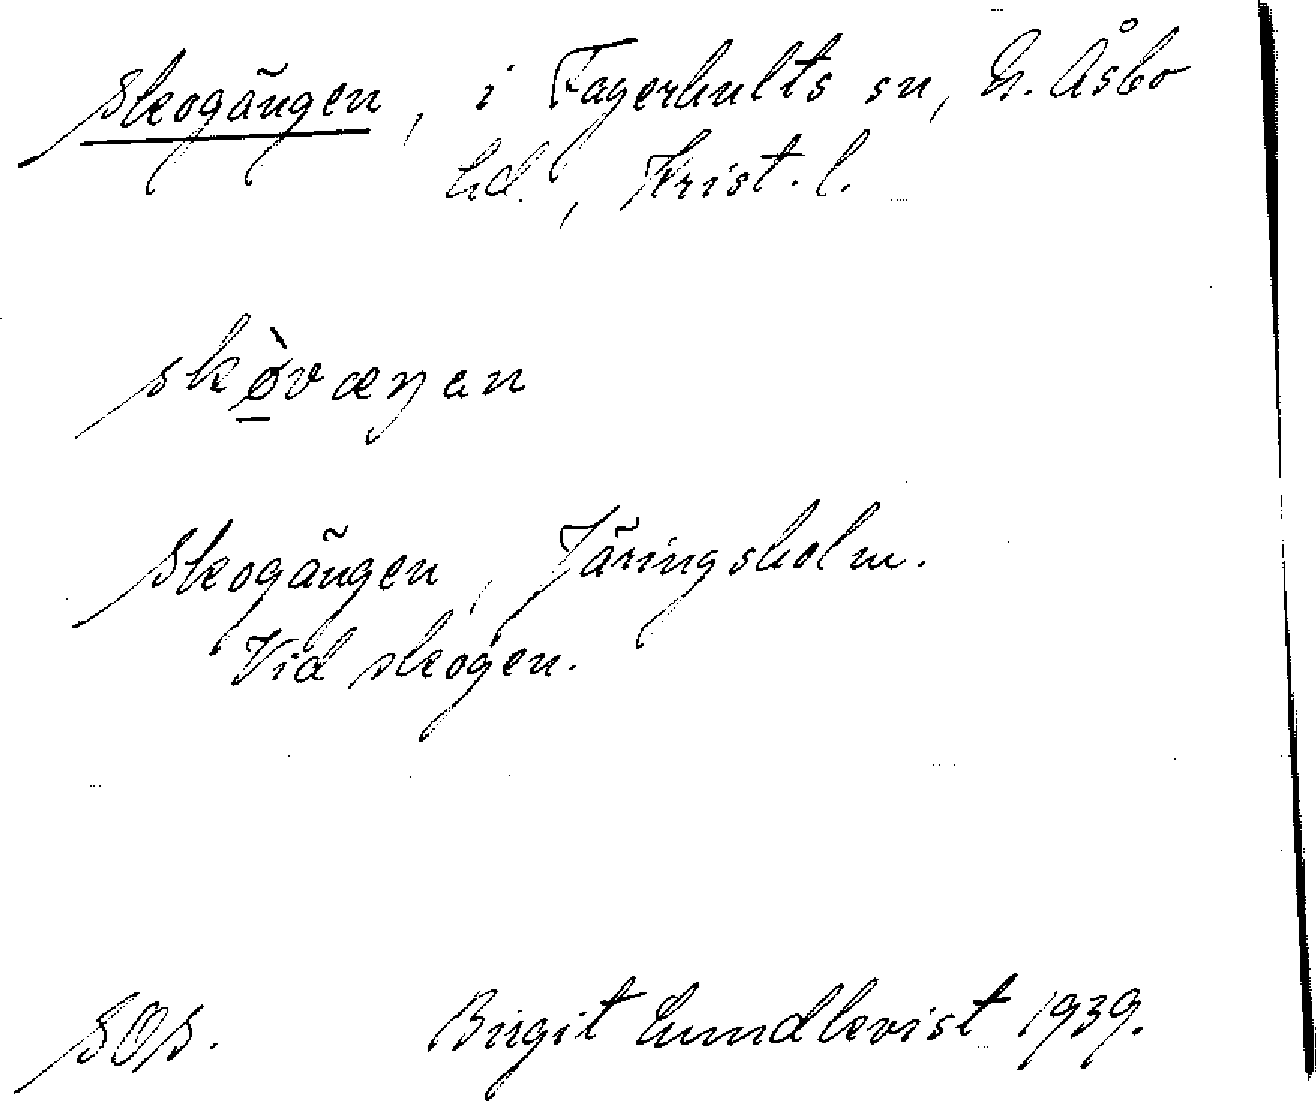 Skogängen, i Fagerhults sn, N. Åsbo
hd., Krist. l.
skø̱̀væŋan
Skogängen, Järingsholm.
Vid skogen.
SOS. Birgit Lundkvist 1939.